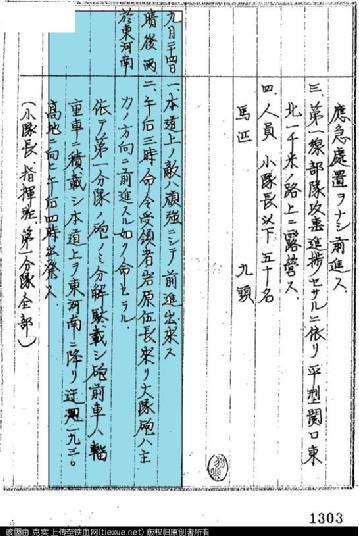 應急處置ヲナシ前進ス、
三、第一線部隊攻撃進捗セサルニ依リ平型関口東
北一千米ノ路上ニ露營ス、
四、人員 小隊長以下 五十名
馬匹 九頭
九月二十四日
晴後雨
於東河南
一、本道上ノ敵ハ頑強ニシテ前進出來ス
二、午后三時命令受領者岩原伍長來リ大隊砲ハ主
力ノ方向ニ前進スル如ク命セラル、
依テ第一分隊ノ砲ノミ分解駄載シ砲前車ハ輜
重車ニ積載シ本道上ヲ東河南ニ降リ迂回一九三〇
高地ニ向ヒ午后四時出發ス
(小隊長、指揮班、第一分隊全部)
1303
被圖由 克实 上传至铁血网(tiexue.net) 版权归原创者所有